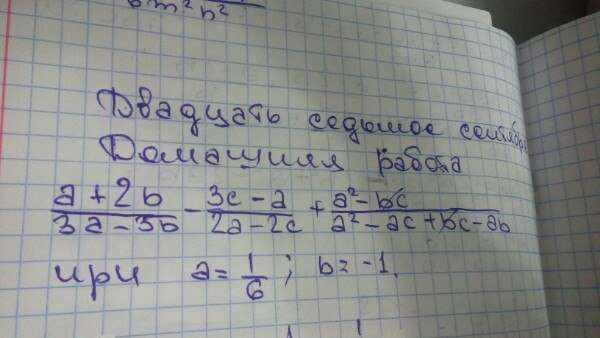 6m²n²
Двадцать седьмое сентября
Домашняя работа
a+2b/3a-3b - 3c-a/2a-2c + a²-bc/a²-ac+bc-ab
при a=1/6; b=-1.